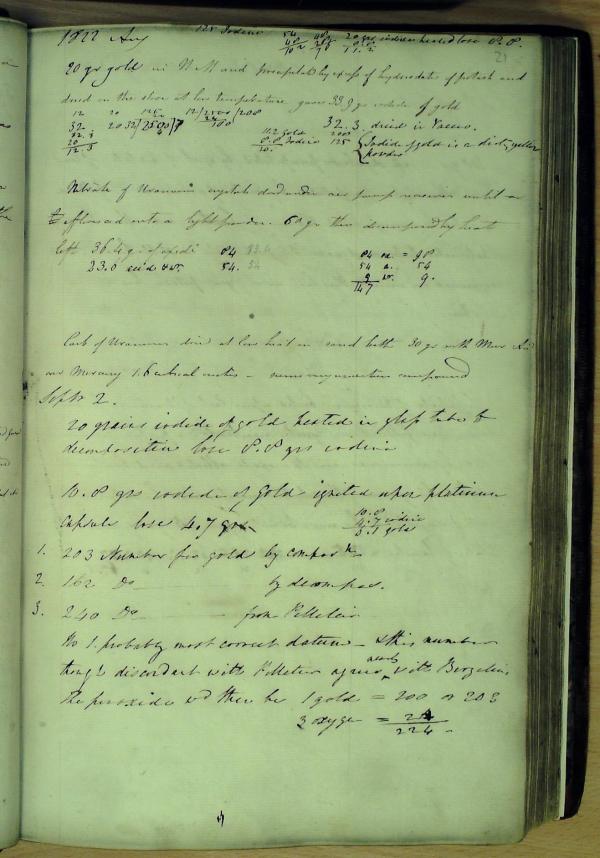 1822 Aug 125 Iodine 54 48 20 grs iodine heated lose 8.8.
20 grs gold in N M and precipitated by excess of hydriodate of potash and
dried on the stove at low temperature gave 33.9 grs iodide of gold
32.3. dried in Vacuo.
11.2 gold
8.8 Iodine
20.
125 Iodide of gold is a dirty yellow
powder
Nitrate of Uranium crystals dried under air pump receiver until
effloresced into a light powder. 60 grs then decomposed by heat
left 36.4 grs of oxide 84
23.6 acid & w. 54.
84 ox. = 98
54 a. 54
9 w. 9.
147
Carb of Uranium dried at low heat in sand bath 30 grs with Mur Acid
over Mercury 1.6 cubical inches
Sept 2.
20 grains iodide of gold heated in glass tube to
decomposition lose 8.8 grs iodine
10.8 grs iodide of Gold ignited upon platinum
capsule lose 4.7 grs
10.8
4.7 iodine
6.1 gold
1. 203 Number for gold by compos n
2. 162 Do by decompos.
3. 240 Do from Pelletier
No 1. probably most correct datum - & this number
though discordant with Pelletier agrees nearly with Berzelius
The peroxide wd then be 1 gold = 200 or 203
3 oxygen = 24
224 -